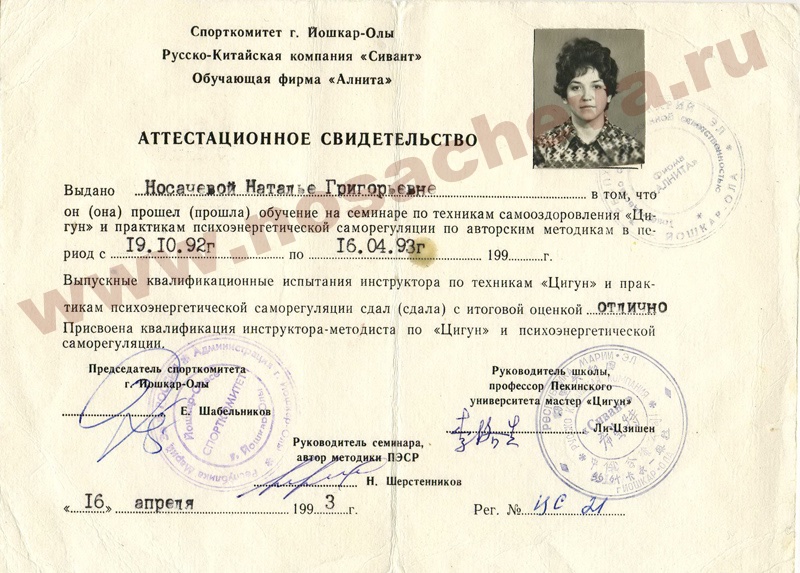 Спорткомитет г. Йошкар-Олы
Русско-Китайская компания «Сивант»
Обучающая фирма «Алнита»
АТТЕСТАЦИОННОЕ СВИДЕТЕЛЬСТВО
Выдано Носачевой Наталье Григорьевне в том, что
он (она) прошел (прошла) обучение на семинаре по техникам самооздоровления «Ци-
гун» и практикам психоэнергетической саморегуляции по авторским методикам в пе-
риод с 19.10.92г по 16.04.93г 199 г.
Выпускные квалификационные испытания инструктора по техникам «Цигун» и прак-
тикам психоэнергетической саморегуляции сдал (сдала) с итоговой оценкой отлично
Присвоена квалификация инструктора-методиста по «Цигун» и психоэнергетической
саморегуляции.
Председатель спорткомитета
г. Йошкар-Олы
Е. Шабельников
Руководитель школы,
профессор Пекинского
университета мастер «Цигун»
Ли-Цзишен
Руководитель семинара,
автор методики ПЭСР
Н. Шерстенников
«16» апреля 1993 г.
Рег. № ЦС 21
ФИРМА
«АЛНИТА»
ЙОШКАР-ОЛА
СПОРТКОМИТЕТ
«Сивант»
www.nosacheva.ru